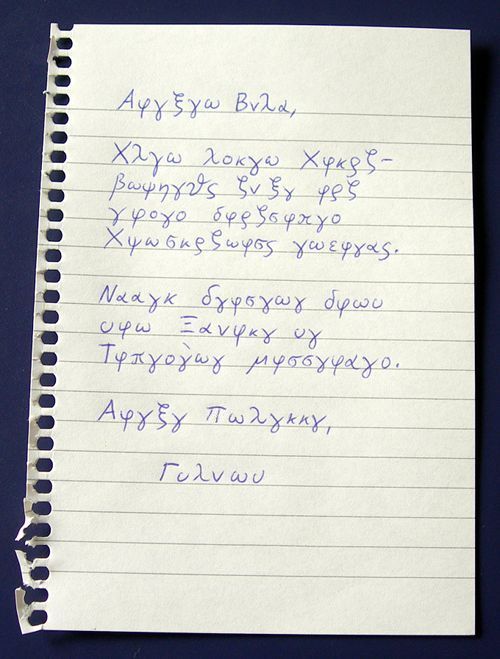 Αφγξγω Βνλα,
Χλγω λοκγω Χφκρζ-
βωψηγθς ζνξγ φρζ
γφογο δφρζσφπγο
Χψωσκρζωφσς γωεφγας.
Νααγκ δγφσγωγ δφωυ
υφω Ξανφκγ υγ
Τφπγογ̀ωγ μφσσγφαγο.
Αφγξγ Πωλγκκγ,
Γυλνωυ